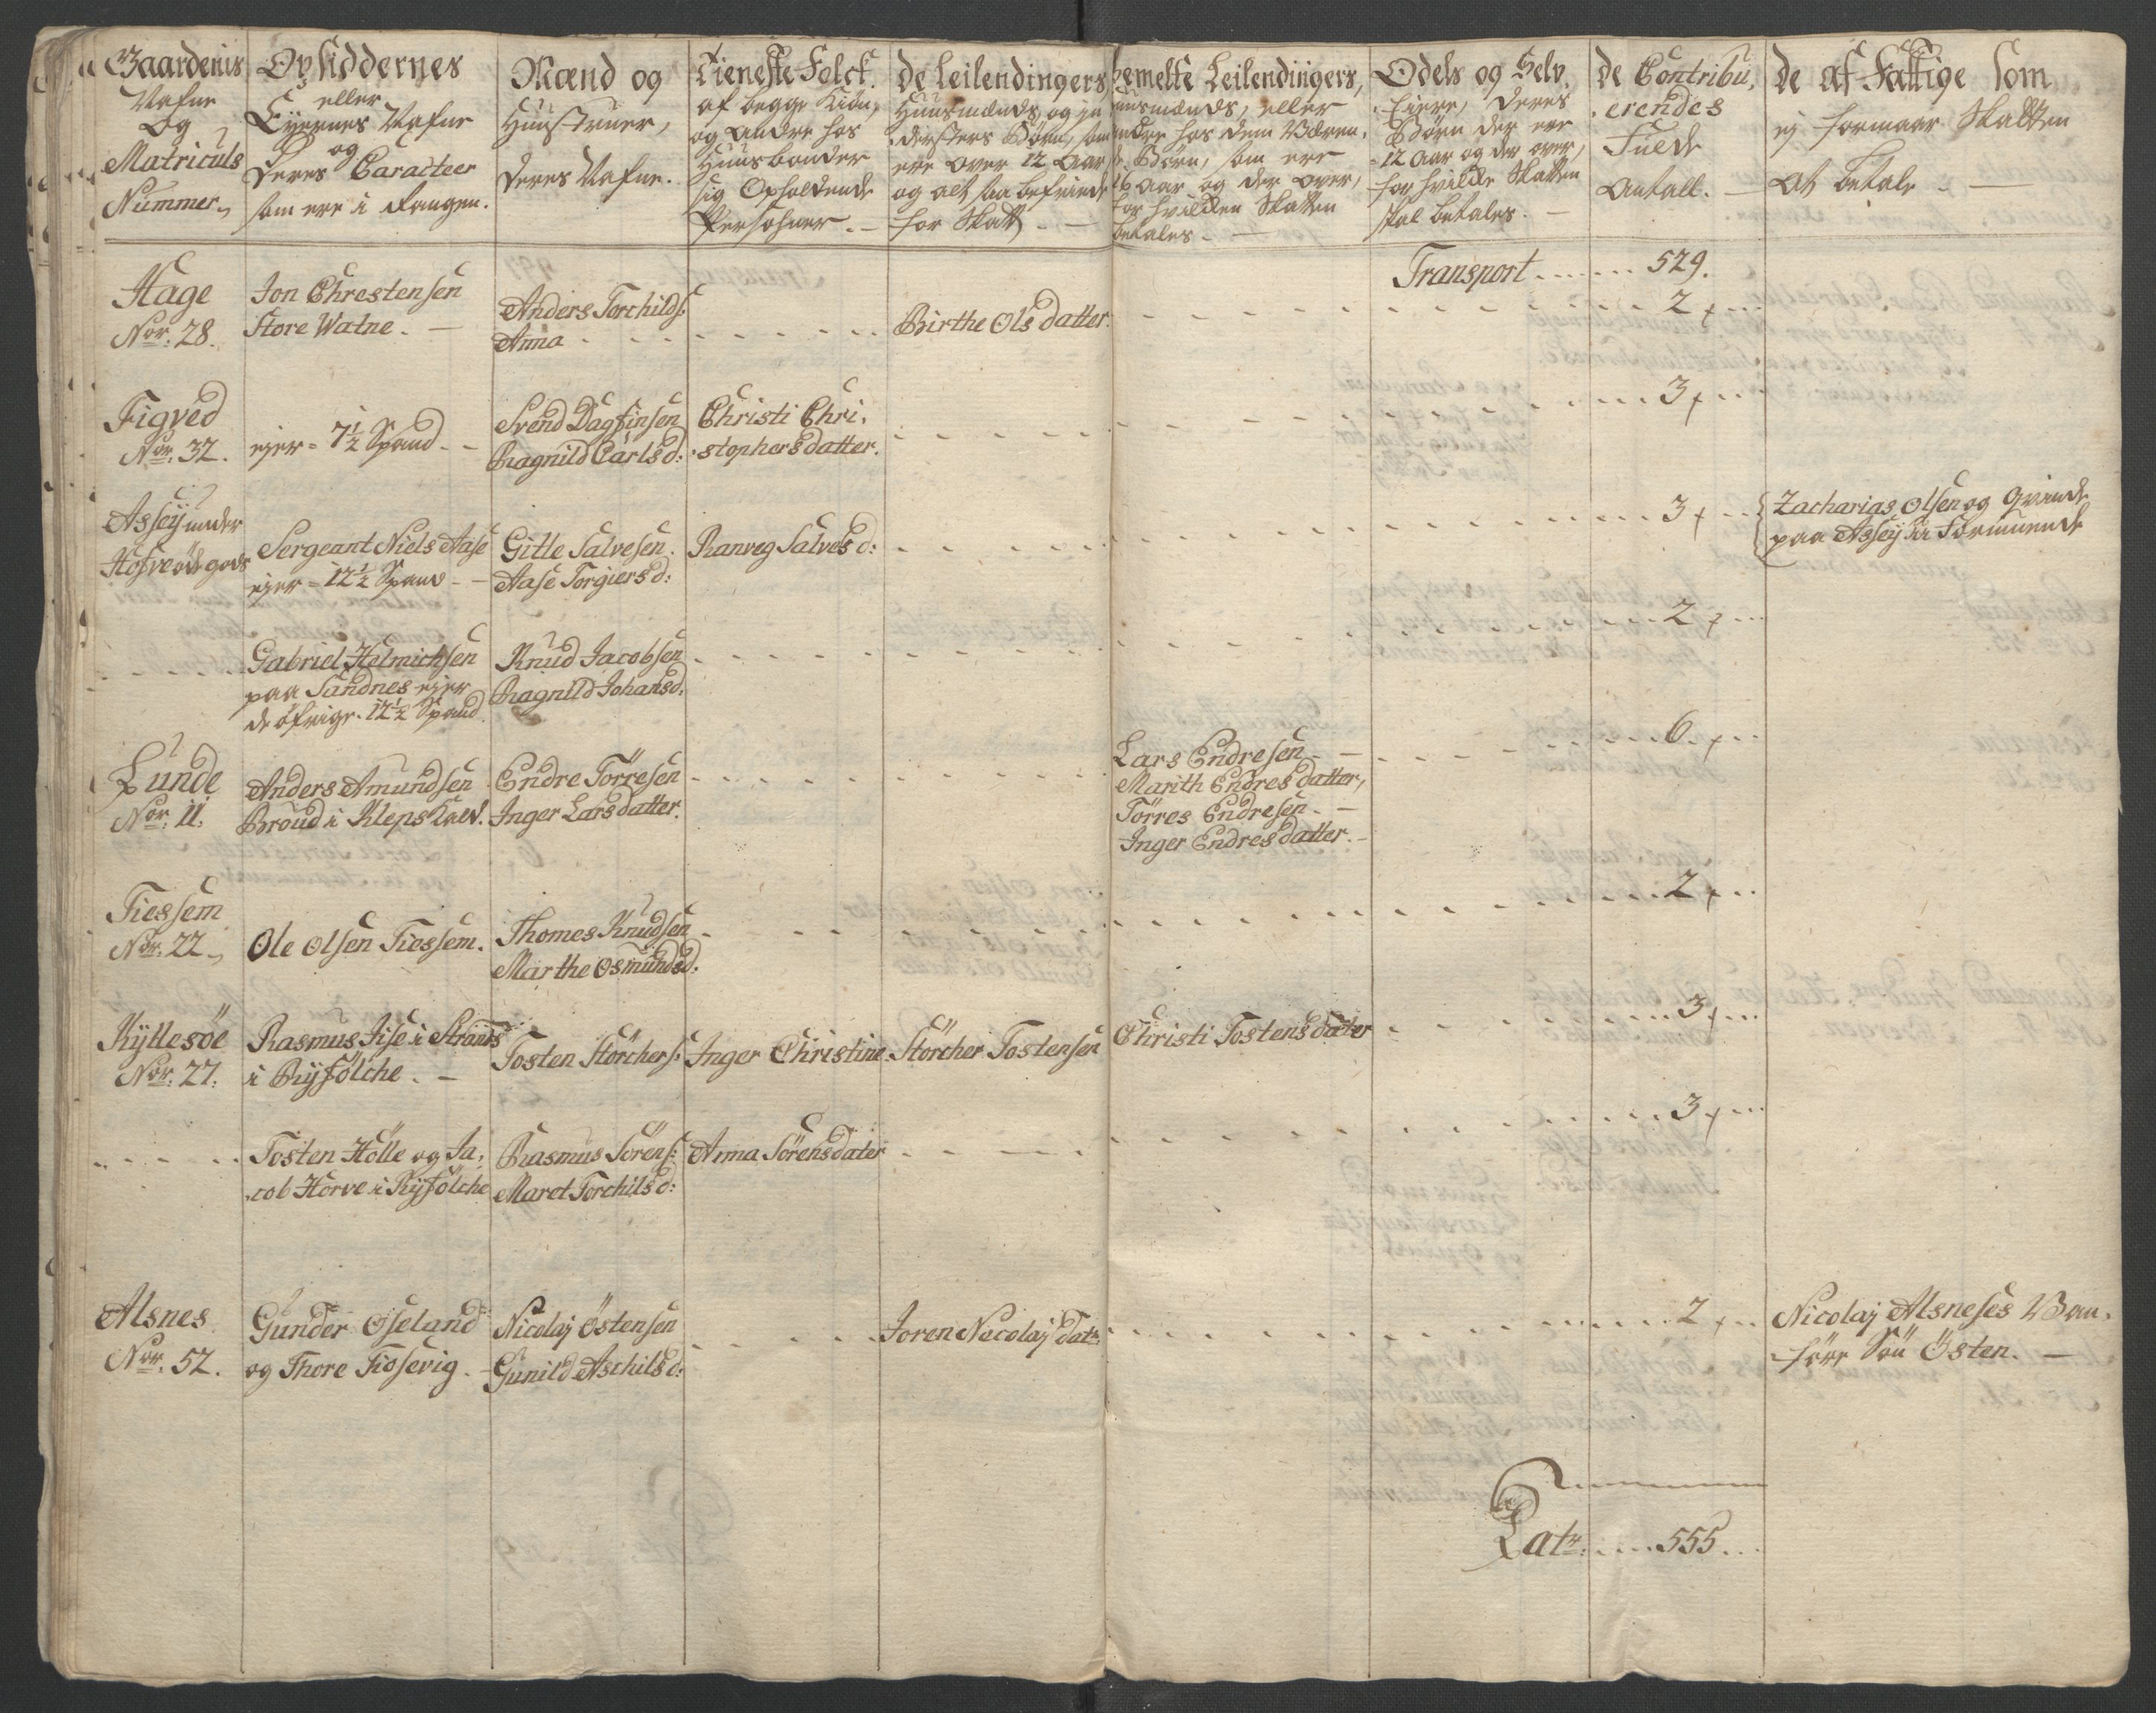 Gaardenis
Nafne
Og
Matriculs
Nummer
Opsiddernes
eller
Eyernes Nafne
og
Deres Caracteer
som ere i Rangen.
Mænd og
Hüüstruer,
deres Nafne.
Tieneste Folck
af begge Kiön,
og andre hos
Huusbonder
sig Opholdende
Persohner. -
De Leilendingers
Huusmænds, og
Börn, som
ere over 12 Aar
og alt saa befriede
for Skatt. -
bemelte Leilendingers,
Huusmænds, eller
andre hos dem Væren.
de Börn, som ere
16 Aar og der over,
for hvilcken Skatten
betales. -
Odels og Selv
Eiere, deres
Börn der ere
12 Aar og der over,
for hvilcke Skatten
skal betales. -
de Contribu,
erendes
Fulde
Antall. -
de af Fattige som
ej formaar Skatten
at betale. -
Transport ...... 529.
Hage
Nor. 28.
Jon Chrestensen
Store Watne. -
Anders Torchilds:
Anna
Birthe Ols datter.
2
Figved
Nor. 32.
ejer = 7½ Spand. -
Svend Dagfinsen
Ragnild Carls d:
Christi Chri,
stophers datter.
3
Assey under
Hosveöe gods
Sergeant Niels Aase
ejer = 12½ Spand - -
Gitle Salvesen.
Aase Torgiers d:
Ranveg Salves d:
3
Zacharias Olsen og Qvinde
paa Assey
Gabriel Helmichsen
paa Sandnes ejer
de öfrige. 12½ Spand
Knud Jacobsen
Ragnild Johans d:
2
Lunde
Nor. 11.
Anders Amundsen
Broud i Kleps
Endre Törresen
Inger Lars datter.
Lars Endresen -
Marith Endres datter,
Törres Endresen. -
Inger Endres datter. -
6
Tiessem
Nor. 22
Ole Olsen Tiossem.
Thomes Knudsen
Marthe Osmunds d:
2
Kyllesöe
Nor. 27.
Rasmus Tise i Strands
i Ryfölche. -
Tosten Störchers:
Inger Christine
Störcher Tostensen
Christi Tostens dater
3
Tosten Hölle og Ja,
cob Horve i Ryfölche
Rasmus Sörens:
Maret Torchils d:
Anna Sörens dater
3
Alsnes
Nor. 52.
Gunder Oseland
og Thore Tiosevig. -
Nicolaj Östensen
Gunild Aschils d:
Joren Necolaj datr.
2
Nicolaj Alsneses Van,
före Sön Östen. -
Latr: .... 555